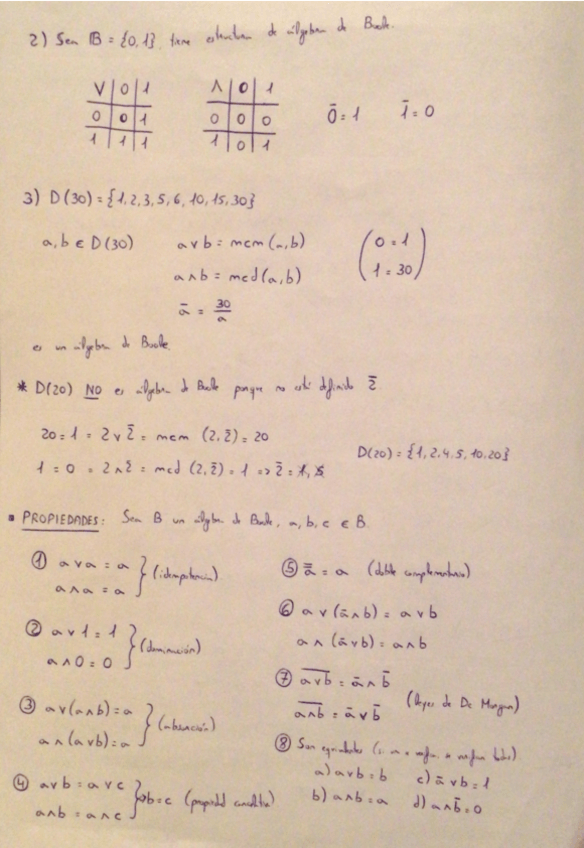 2) Sea B = {0,1} tiene estructura de álgebra de Boole.
∨ | 0 | 1
0 | 0 | 1
1 | 1 | 1
∧ | 0 | 1
0 | 0 | 0
1 | 0 | 1
0̄ = 1   1̄ = 0
3) D(30) = {1, 2, 3, 5, 6, 10, 15, 30}
a, b ∈ D(30)   a∨b = mcm(a,b)
a∧b = mcd(a,b)
ā = 30/a
(0 = 1
1 = 30)
es un álgebra de Boole.
* D(20) NO es álgebra de Boole porque no está definido 2̄
20 = 1 = 2∨2̄ = mcm (2, 2̄) = 20
1 = 0 = 2∧2̄ = mcd (2, 2̄) = 1 => 2̄ = 1, 5
D(20) = {1, 2, 4, 5, 10, 20}
▪ PROPIEDADES: Sea B un álgebra de Boole, a, b, c ∈ B
① a∨a = a
a∧a = a } (idempotencia)
② a∨1 = 1
a∧0 = 0 } (dominación)
③ a∨(a∧b) = a
a∧(a∨b) = a } (absorción)
④ a∨b = a∨c
a∧b = a∧c } => b = c (propiedad cancelativa)
⑤ a̿ = a (doble complementario)
⑥ a∨(ā∧b) = a∨b
a∧(ā∨b) = a∧b
⑦ \overline{a∨b} = ā∧b̄
\overline{a∧b} = ā∨b̄ (leyes de De Morgan)
⑧ Son equivalentes (si una se verifica, se verifican todas)
a) a∨b = b   c) ā∨b = 1
b) a∧b = a   d) a∧b̄ = 0